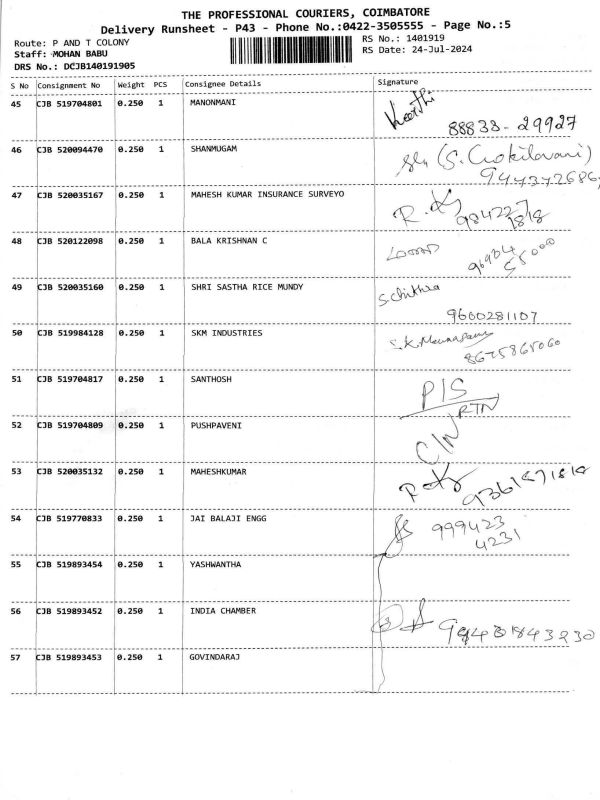 THE PROFESSIONAL COURIERS, COIMBATORE
Delivery Runsheet - P43 - Phone No.:0422-3505555 - Page No.:5
Route: P AND T COLONY
RS No.: 1401919
Staff: MOHAN BABU
RS Date: 24-Jul-2024
DRS No.: DCJB140191905
S No Consignment No Weight PCS Consignee Details Signature
45 CJB 519704801 0.250 1 MANONMANI Keerthi
88838-29927
46 CJB 520094470 0.250 1 SHANMUGAM (S. Gokilavani)
47 CJB 520035167 0.250 1 MAHESH KUMAR INSURANCE SURVEYO
984227
1818
48 CJB 520122098 0.250 1 BALA KRISHNAN C
49 CJB 520035160 0.250 1 SHRI SASTHA RICE MUNDY S.Chithra
9600281107
50 CJB 519984128 0.250 1 SKM INDUSTRIES
8675865060
51 CJB 519704817 0.250 1 SANTHOSH P/S
RTN
52 CJB 519704809 0.250 1 PUSHPAVENI C/N
53 CJB 520035132 0.250 1 MAHESHKUMAR
54 CJB 519770833 0.250 1 JAI BALAJI ENGG 999423
4231
55 CJB 519893454 0.250 1 YASHWANTHA
56 CJB 519893452 0.250 1 INDIA CHAMBER (3)
57 CJB 519893453 0.250 1 GOVINDARAJ